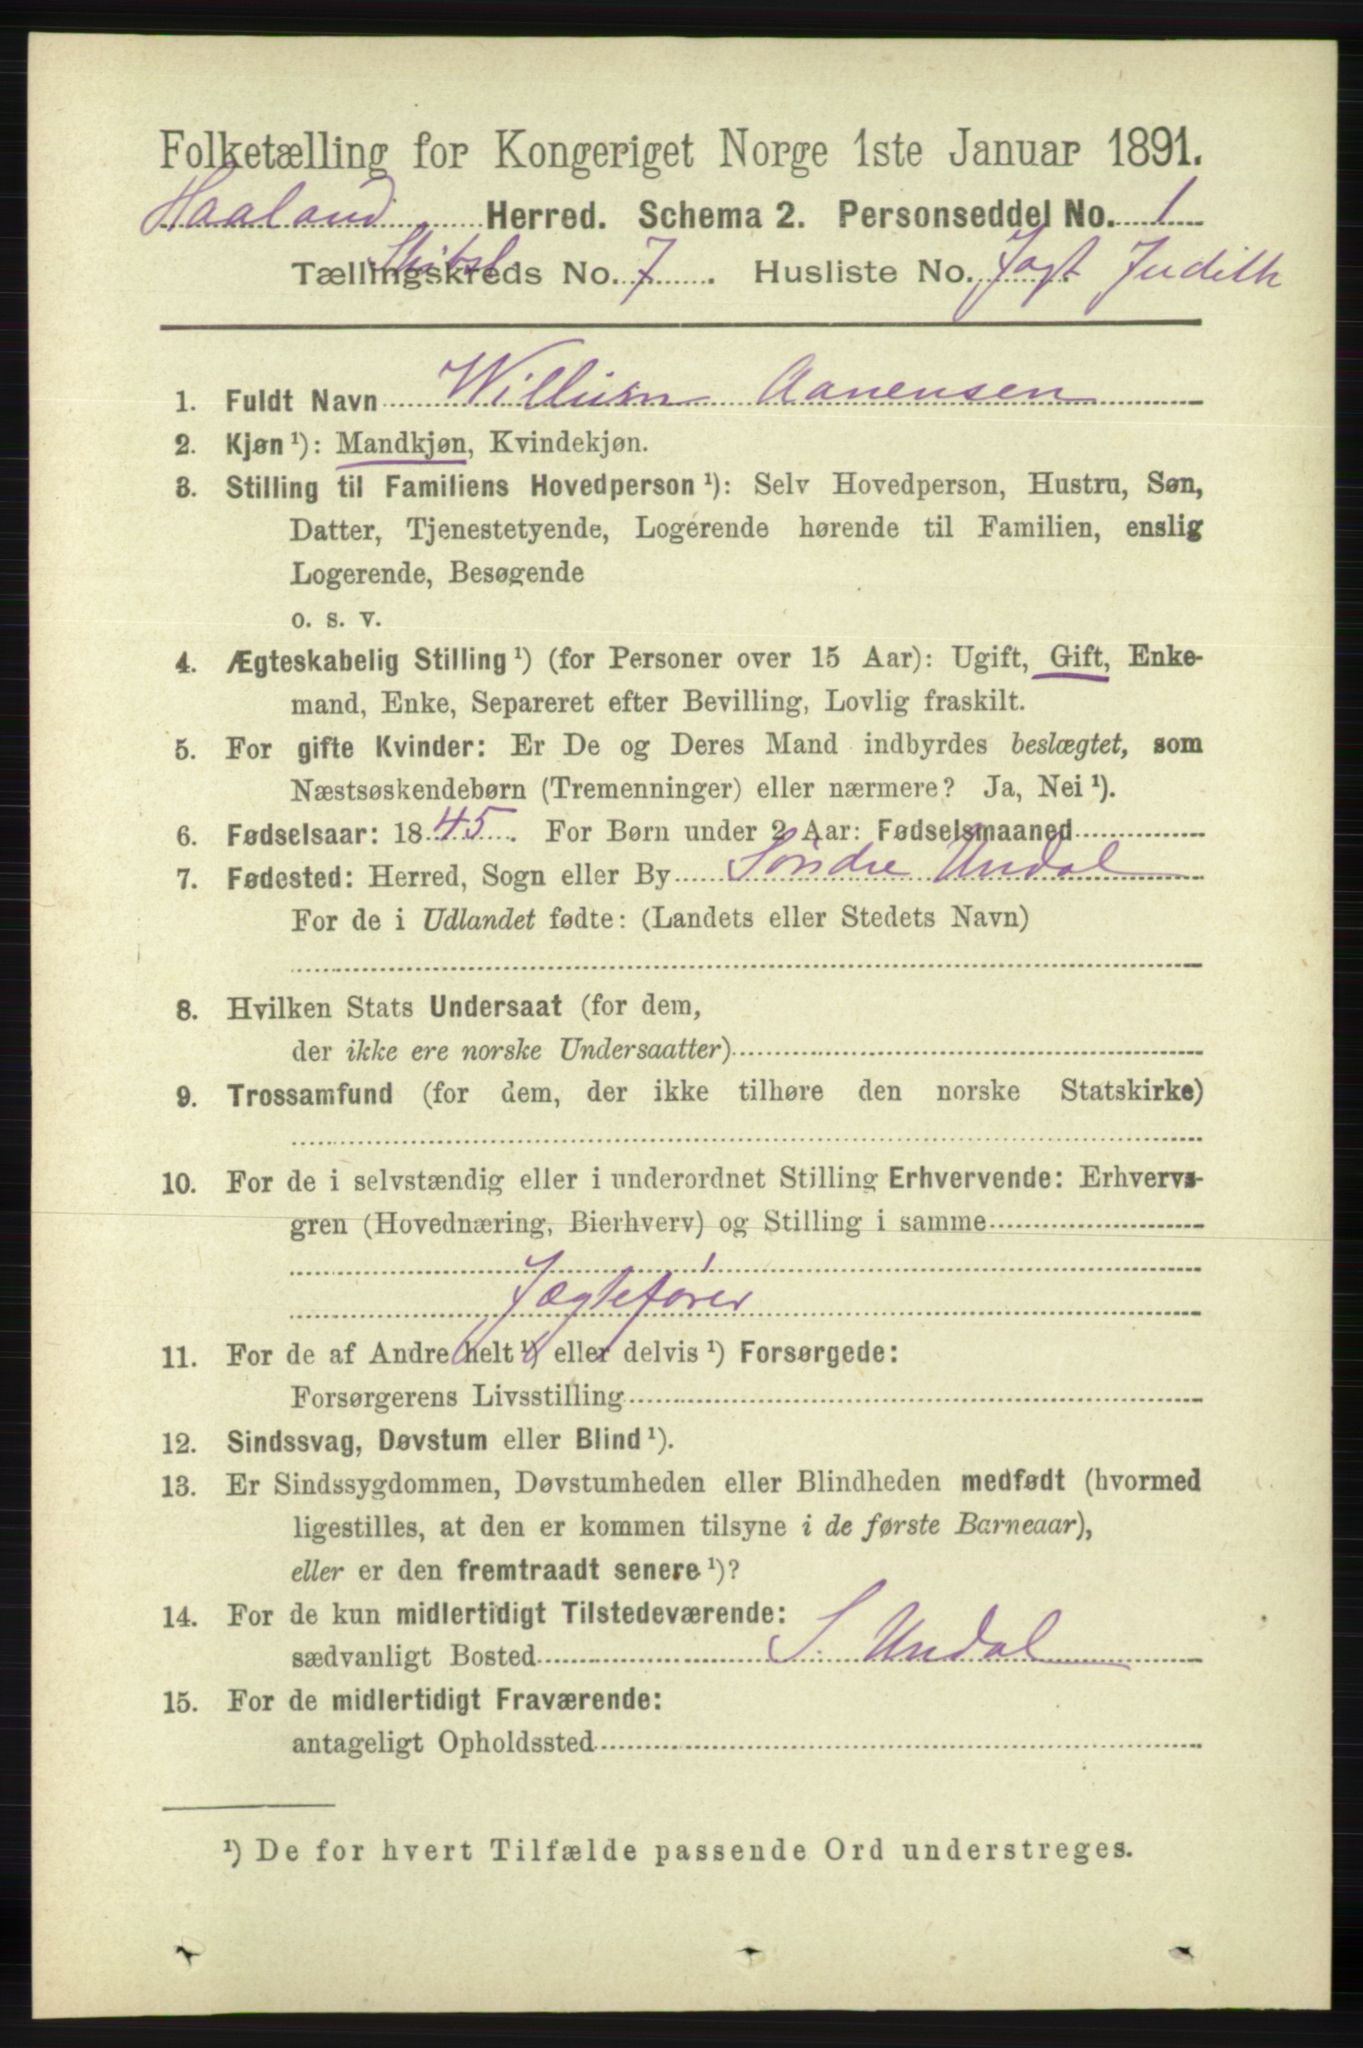 Folketælling for Kongeriget Norge 1ste Januar 1891.
Haaland Herred. Schema 2. Personseddel No. 1
Skibsl
Tællingskreds No. 7. Husliste No. Jagt Judith
1. Fuldt Navn Willum Aanensen
2. Kjøn ¹): Mandkjøn, Kvindekjøn.
3. Stilling til Familiens Hovedperson ¹): Selv Hovedperson, Hustru, Søn,
Datter, Tjenestetyende, Logerende hørende til Familien, enslig
Logerende, Besøgende
o. s. v.
4. Ægteskabelig Stilling ¹) (for Personer over 15 Aar): Ugift, Gift, Enke-
mand, Enke, Separeret efter Bevilling, Lovlig fraskilt.
5. For gifte Kvinder: Er De og Deres Mand indbyrdes beslægtet, som
Næstsøskendebørn (Tremenninger) eller nærmere? Ja, Nei ¹).
6. Fødselsaar: 1845. For Børn under 2 Aar: Fødselsmaaned
7. Fødested: Herred, Sogn eller By Söndre Undal
For de i Udlandet fødte: (Landets eller Stedets Navn)
8. Hvilken Stats Undersaat (for dem,
der ikke ere norske Undersaatter)
9. Trossamfund (for dem, der ikke tilhøre den norske Statskirke)
10. For de i selvstændig eller i underordnet Stilling Erhvervende: Erhvervs-
gren (Hovednæring, Bierhverv) og Stilling i samme
Jægtefører
11. For de af Andre helt ¹) eller delvis ¹) Forsørgede:
Forsørgerens Livsstilling
12. Sindssvag, Døvstum eller Blind ¹).
13. Er Sindssygdommen, Døvstumheden eller Blindheden medfødt (hvormed
ligestilles, at den er kommen tilsyne i de første Barneaar),
eller er den fremtraadt senere ¹)?
14. For de kun midlertidigt Tilstedeværende:
sædvanligt Bosted S. Undal
15. For de midlertidigt Fraværende:
antageligt Opholdssted
¹) De for hvert Tilfælde passende Ord understreges.